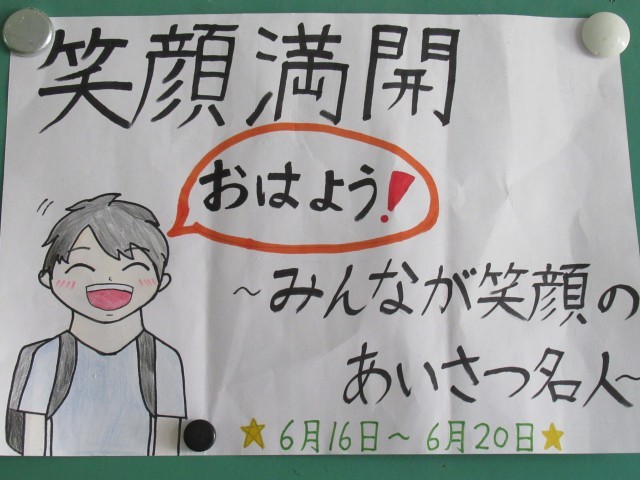 笑顔満開
おはよう!
～みんなが笑顔の
あいさつ名人～
6月16日～6月20日